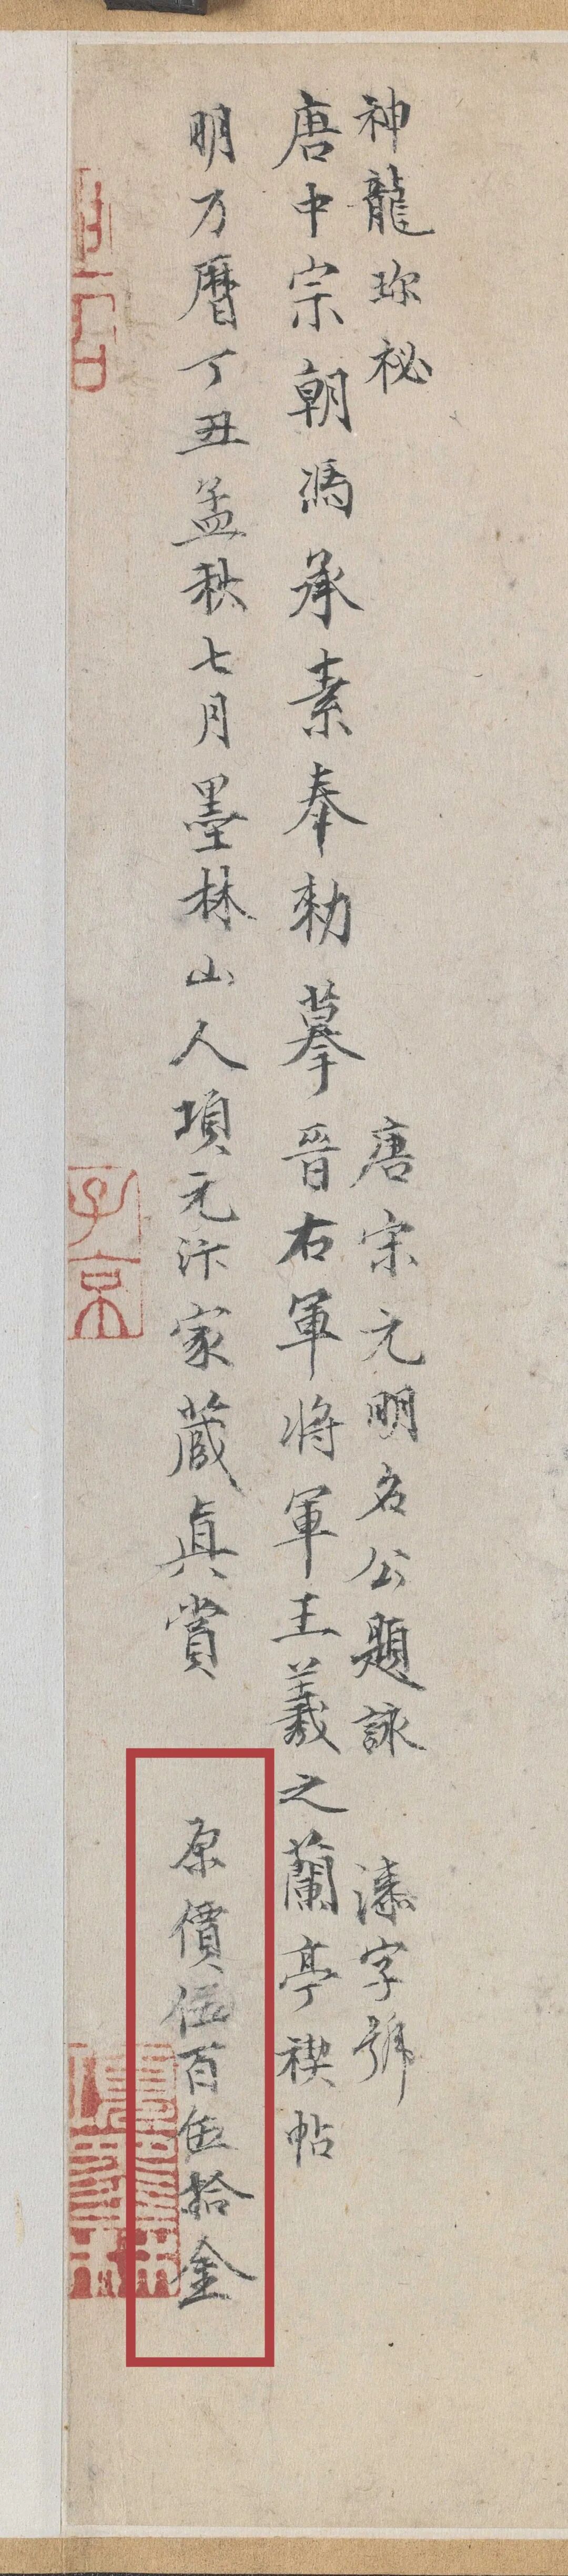 神龍珎祕　唐宋元明名公題詠　溱字號
唐中宗朝馮承素奉勑摹晉右軍將軍王羲之蘭亭禊帖
明万曆丁丑孟秋七月墨林山人項元汴家藏真賞　原價伍百伍拾金
子京